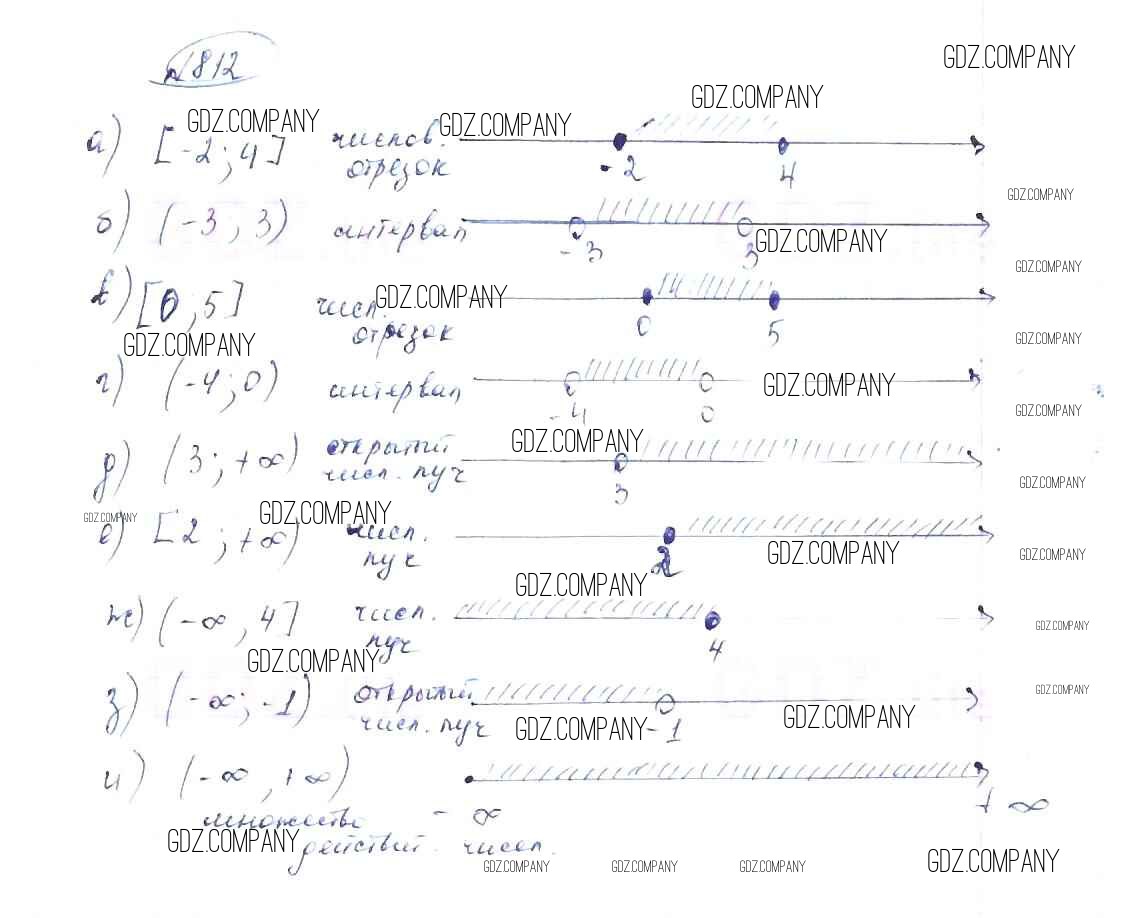 №812
GDZ.COMPANY
GDZ.COMPANY
GDZ.COMPANY GDZ.COMPANY
а) [-2; 4] числов. отрезок -2 4
GDZ.COMPANY
б) (-3; 3) интервал -3 3
GDZ.COMPANY
GDZ.COMPANY
в) [0; 5] числ. отрезок 0 5
GDZ.COMPANY
GDZ.COMPANY
GDZ.COMPANY
г) (-4; 0) интервал -4 0
GDZ.COMPANY
GDZ.COMPANY
GDZ.COMPANY
д) (3; +∞) открытый числ. луч 3
GDZ.COMPANY
GDZ.COMPANY GDZ.COMPANY
е) [2; +∞) числ. луч 2
GDZ.COMPANY GDZ.COMPANY
GDZ.COMPANY
ж) (-∞, 4] числ. луч 4
GDZ.COMPANY
GDZ.COMPANY
GDZ.COMPANY
з) (-∞; -1) открытый числ. луч -1
GDZ.COMPANY GDZ.COMPANY
и) (-∞, +∞)
множество - ∞ + ∞
GDZ.COMPANY действит. чисел.
GDZ.COMPANY GDZ.COMPANY GDZ.COMPANY GDZ.COMPANY